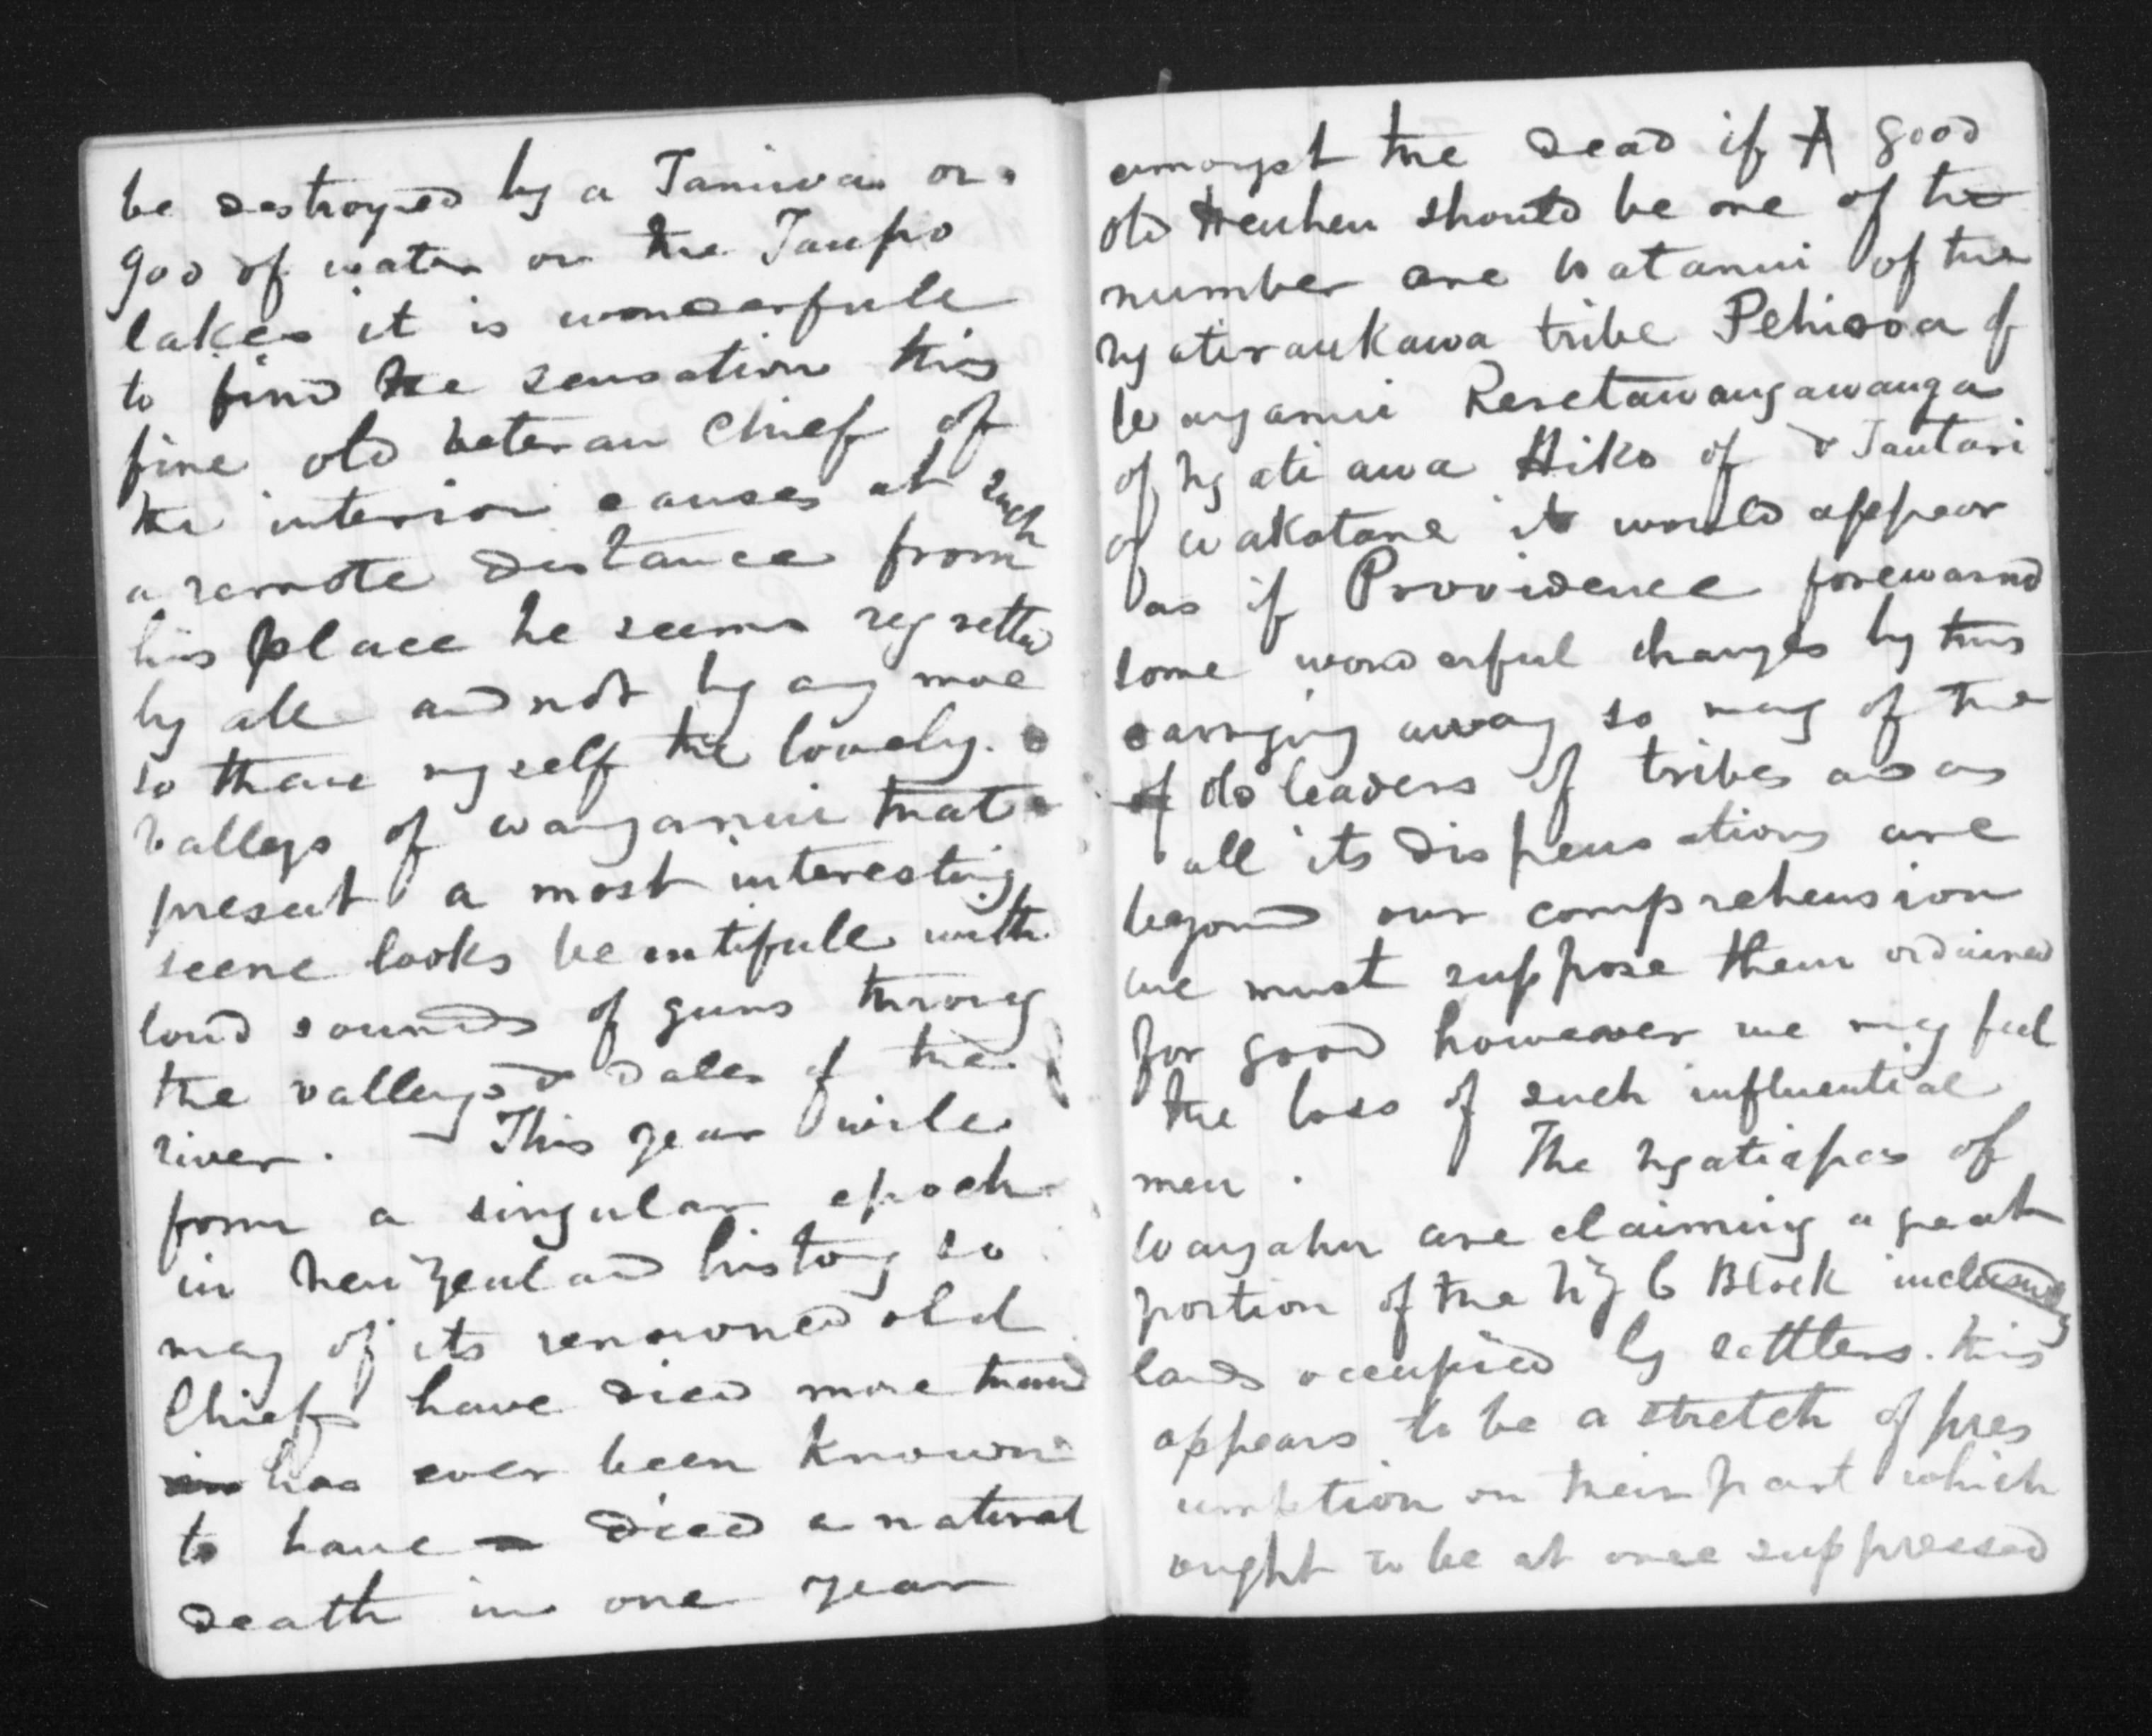 be destroyed by a Taniwa or
god of water on the Taupo
lakes it is wonderfull
to find the sensation this
fine old veteran chief of
the interior causes at such
a remote distance from
his place he seems regretted
by all and not by any more
so than myself the lovely
valleys of wanganui that
present a most interesting
scene looks beautifull with
loud sounds of guns through
the valleys & dales of the
river. This year will
form a singular epoch
in New Zealand history so
many of its renowned old
Chiefs have died more than
has ever been known
to have died a natural
death in one year
amongst the dead if A good
old Heuheu should be one of the
number are Watanui of the
ngatiraukawa tribe Pehiroa of
Wanganui Reretawangawanga
of Ngatiawa Hiko of & Tautari
of wakatane it would appear
as if Providence forewarnd
some wonderful changes by thus
carrying away so many of the
of old leaders of tribes and as
all its dispensations are
beyond our comprehension
we must suppose them ordained
for good however we may feel
the loss of such influential
men. The ngatiapas of
Wangahu are claiming a great
portion of the NZ C Block including
lands occupied by settlers. this
appears to be a stretch of pres
umption on their part which
ought to be at once suppressed